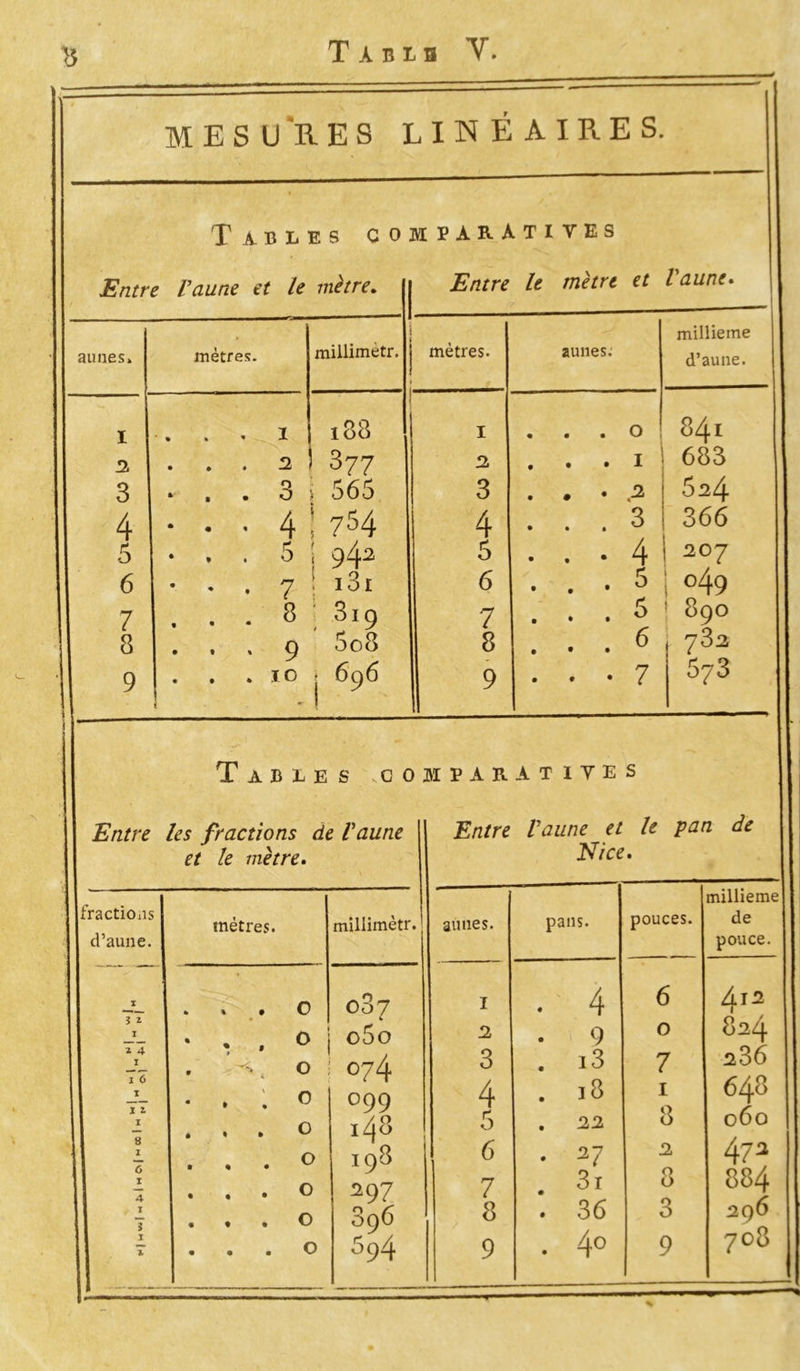 8 TABLE V.
MESURES LINÉAIRES.
TABLES COMPARATIVES
Entre l'aune et le mètre. Entre le mètre et l'aune.
aunes. mètres. millimètr. mètres. aunes. millieme d'aune.
1 . . . 1 188 1 . . . 0 841
2 . . . 2 377 2 . . . 1 683
3 . . . 3 565 3 . . . 2 524
4 . . . 4 754 4 . . . 3 366
5 . . . 5 942 5 . . . 4 207
6 . . . 7 131 6 . . . 5 049
7 . . . 8 319 7 . . . 5 890
8 . . . 9 508 8 . . . 6 732
9 . . . 10 696 9 . . . 7 573
TABLES COMPARATIVES
Entre les fractions de l'aune et le mètre. Entre l'aune et le pan de Nice.
fractions d'aune. mètres. millimètr. aunes. pans. pouces. millieme de pouce.
1/32 . . . 0 037 1 . 4 6 412
1/24 . . . 0 050 2 . 9 0 824
1/16 . . . 0 074 3 . 13 7 236
1/12 . . . 0 099 4 . 18 1 648
1/8 . . . 0 148 5 . 22 8 060
1/6 . . . 0 198 6 . 27 2 472
1/4 . . . 0 297 7 . 31 8 884
1/3 . . . 0 396 8 . 36 3 296
1/2 . . . 0 594 9 . 40 9 708